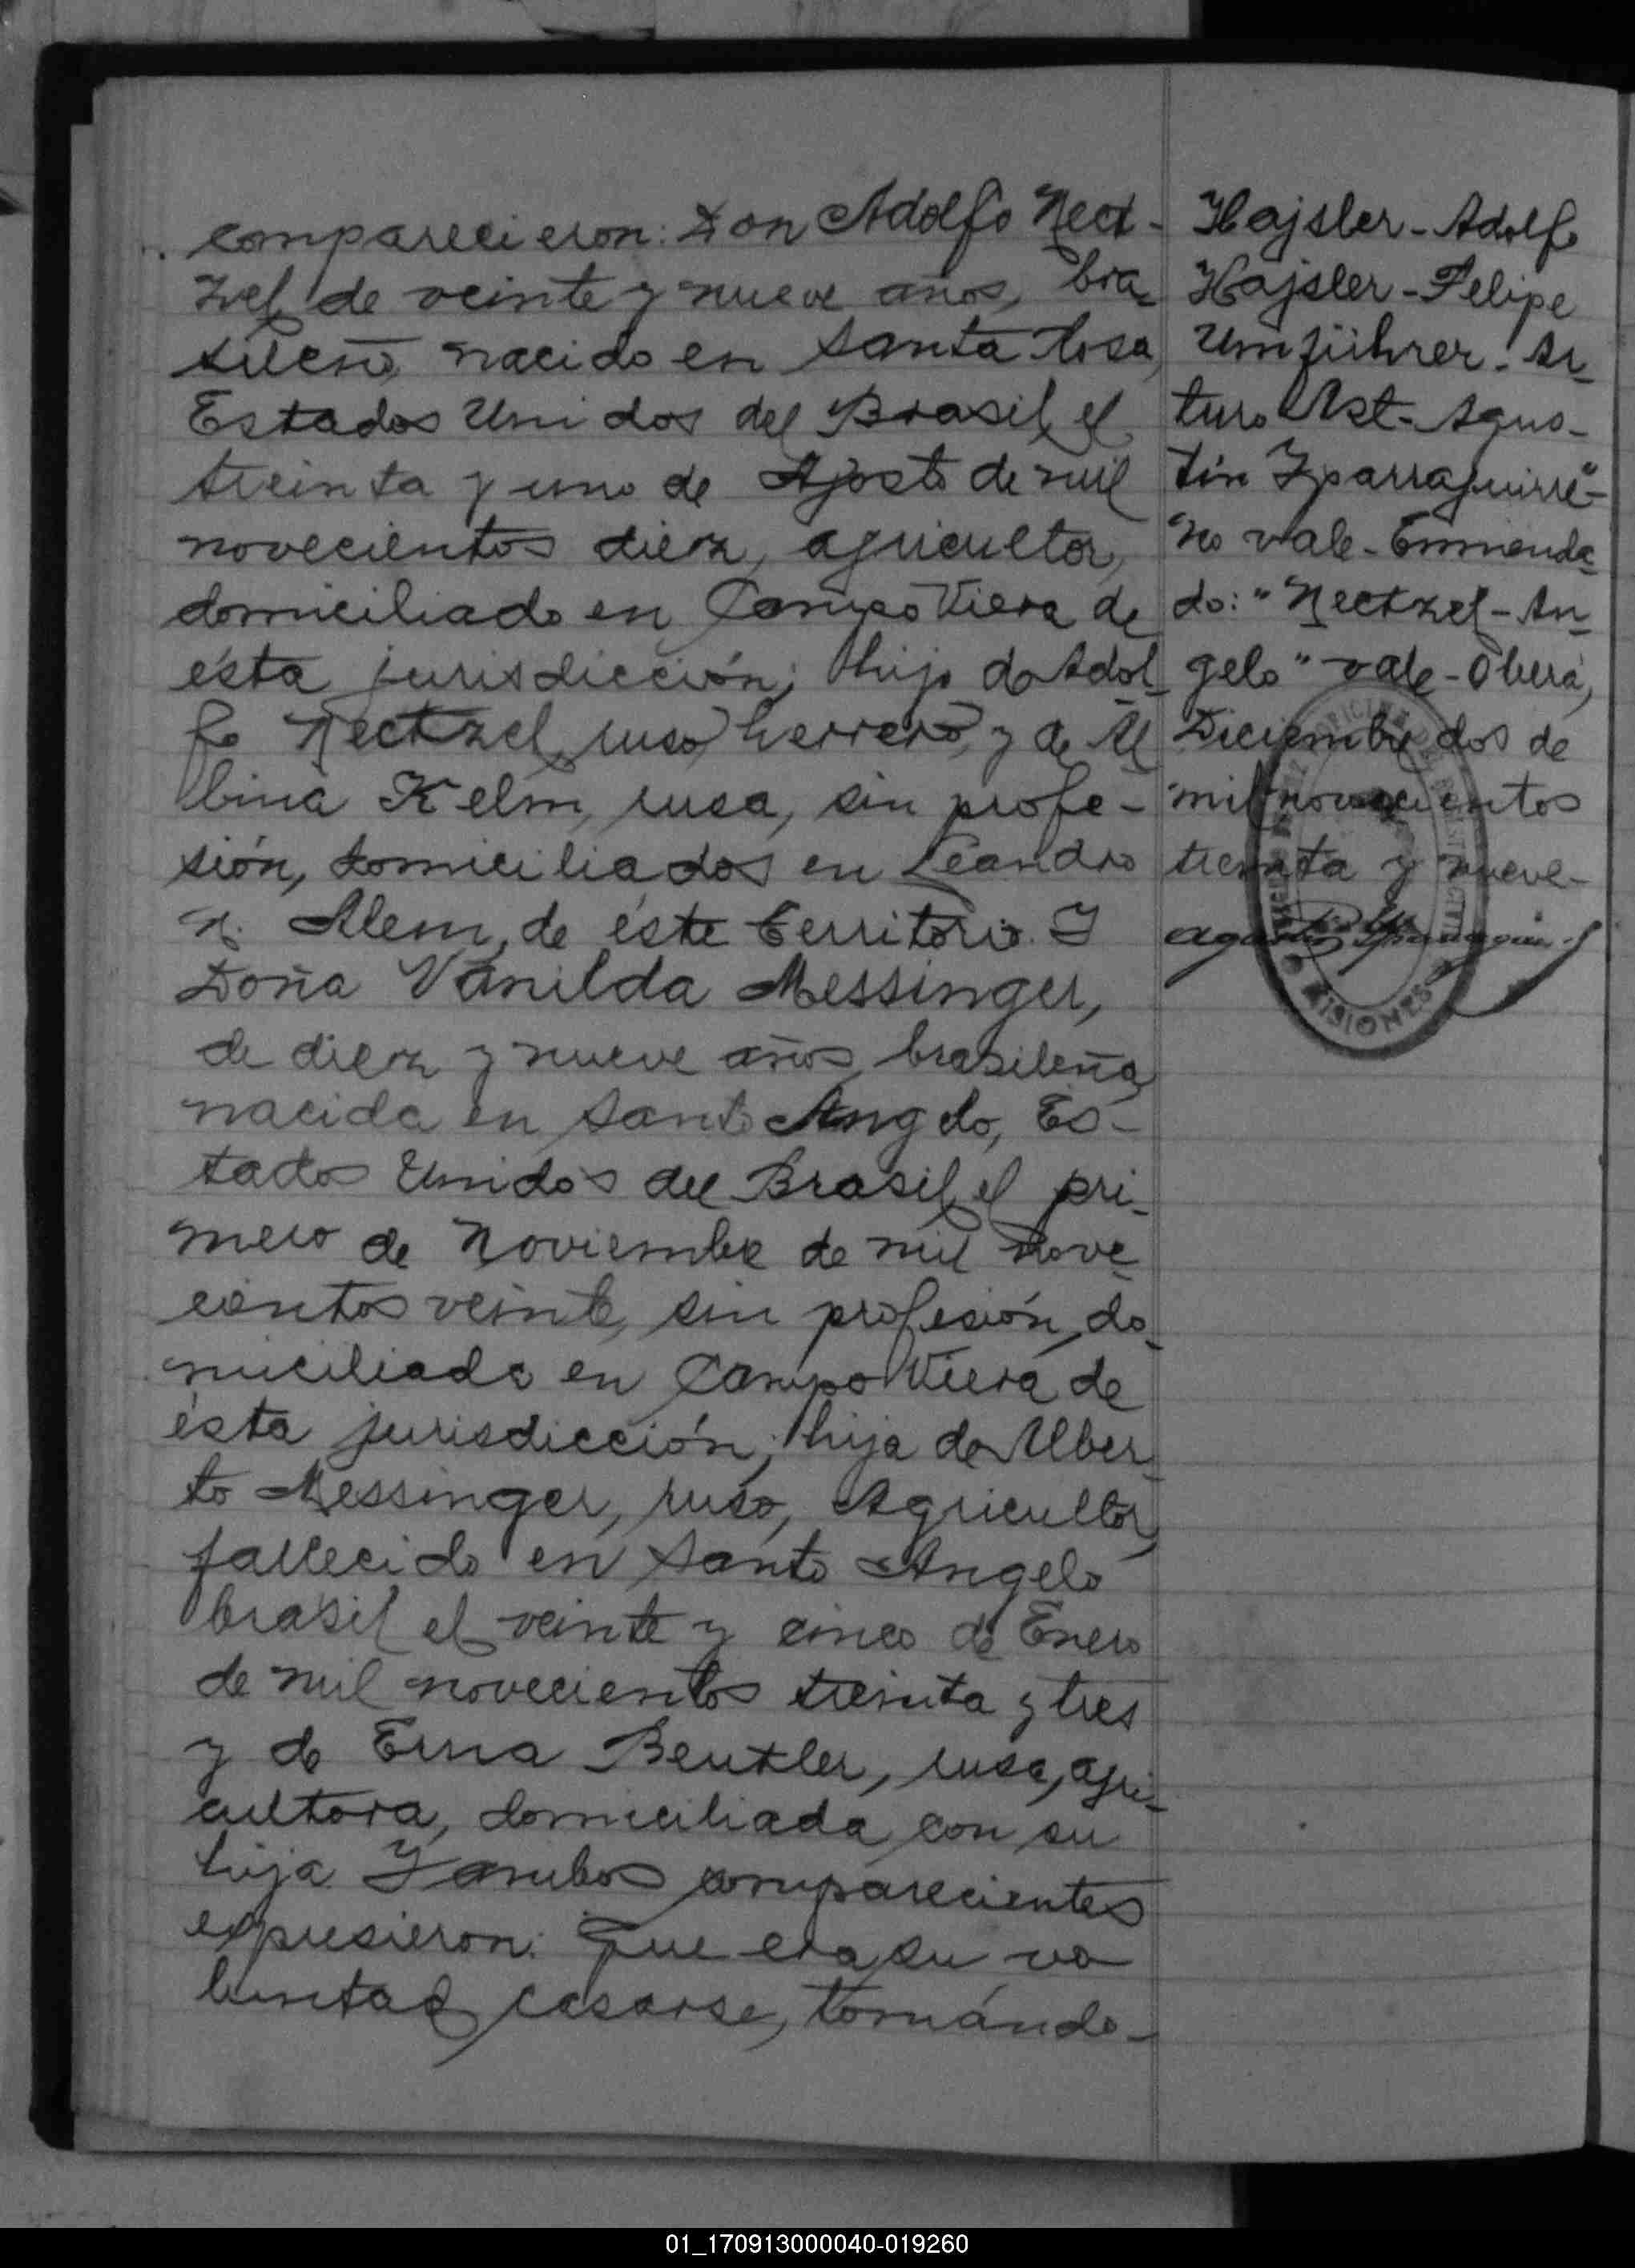 comparecieron: Don Adolfo Nect-
zel, de veinte y nueve años, bra-
sileño, nacido en Santa Rosa,
Estados Unidos del Brasil, el
treinta y uno de Agosto de mil
novecientos diez, agricultor,
domiciliado en Campo Viera de
ésta jurisdicción; hijo de Adol-
fo Nectzel, ruso, herrero, y de Al
bina Kelm, rusa, sin profe-
sión, domiciliados en Leandro
N. Alem, de éste Territorio. Y
Doña Vanilda Messinger,
de diez y nueve años, brasileña,
nacida en Santo Angelo, Es-
tados Unidos del Brasil, el pri-
mero de Noviembre de mil nove-
cientos veinte, sin profesión, do-
miciliada en Campo Viera de
ésta jurisdicción; hija de Alber-
to Messinger, ruso, Agricultor,
fallecido en Santo Angelo
brasil el veinte y cinco de Enero
de mil novecientos treinta y tres
y de Erna Beutler, rusa, agri-
cultora, domiciliada con su
hija. Y ambos comparecientes
expusieron: Que era su vo
luntad casarse, tomándo-
Hajsler-Adolfo
Hajsler-Felipe
Umführer-Ar-
turo Ast-Agus-
tín Yparraguirre"-
No vale-Enmenda-
do: "Nectzel-An-
gelo" vale-Oberá,
Diciembre dos de
mil novecientos
treinta y nueve-
MISIONES
01_170913000040-019260